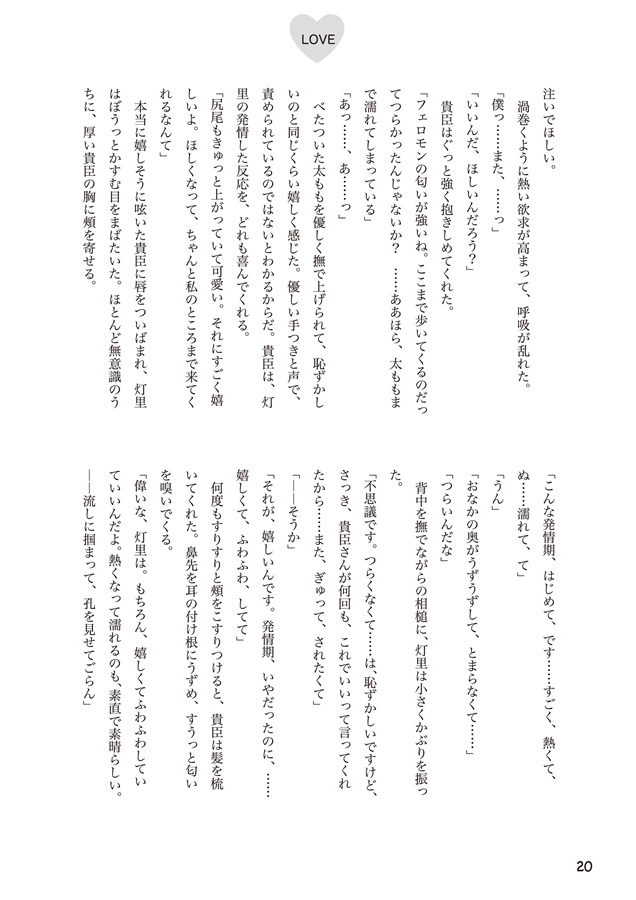 LOVE
注いでほしい。
渦巻くように熱い欲求が高まって、呼吸が乱れた。
「僕っ……また、……っ」
「いいんだ、ほしいんだろう？」
貴臣はぐっと強く抱きしめてくれた。
「フェロモンの匂いが強いね。ここまで歩いてくるのだっ
てつらかったんじゃないか？　……ああほら、太ももま
で濡れてしまっている」
「あっ……、あ……っ」
べたついた太ももを優しく撫で上げられて、恥ずかし
いのと同じくらい嬉しく感じた。優しい手つきと声で、
責められているのではないとわかるからだ。貴臣は、灯
里の発情した反応を、どれも喜んでくれる。
「尻尾もきゅっと上がっていて可愛い。それにすごく嬉
しいよ。ほしくなって、ちゃんと私のところまで来てく
れるなんて」
本当に嬉しそうに呟いた貴臣に唇をついばまれ、灯里
はぼうっとかすむ目をまばたいた。ほとんど無意識のう
ちに、厚い貴臣の胸に頬を寄せる。
「こんな発情期、はじめて、です……すごく、熱くて、
ぬ……濡れて、て」
「うん」
「おなかの奥がうずうずして、とまらなくて……」
「つらいんだな」
背中を撫でながらの相槌に、灯里は小さくかぶりを振っ
た。
「不思議です。つらくなくて……は、恥ずかしいですけど、
さっき、貴臣さんが何回も、これでいいって言ってくれ
たから……また、ぎゅって、されたくて」
「――そうか」
「それが、嬉しいんです。発情期、いやだったのに、……
嬉しくて、ふわふわ、してて」
何度もすりすりと頬をこすりつけると、貴臣は髪を梳
いてくれた。鼻先を耳の付け根にうずめ、すうっと匂い
を嗅いでくる。
「偉いな、灯里は。もちろん、嬉しくてふわふわしてい
ていいんだよ。熱くなって濡れるのも、素直で素晴らしい。
――流しに掴まって、孔を見せてごらん」
20